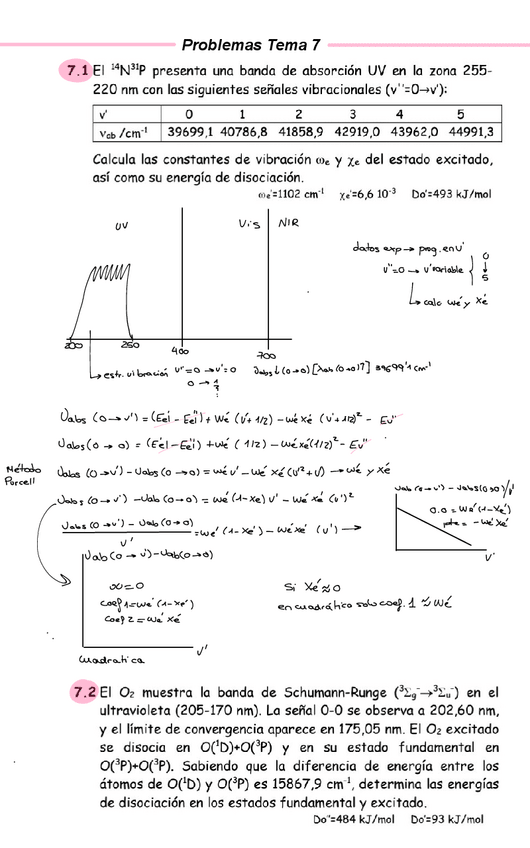 Problemas Tema 7
7.1 El ¹⁴N³¹P presenta una banda de absorción UV en la zona 255-
220 nm con las siguientes señales vibracionales (v''=0→v'):
v' 0 1 2 3 4 5
νab /cm⁻¹ 39699,1 40786,8 41858,9 42919,0 43962,0 44991,3
Calcula las constantes de vibración ωe y χe del estado excitado,
así como su energía de disociación.
ωe'=1102 cm⁻¹ χe'=6,6 10⁻³ Do'=493 kJ/mol
UV
Vis
NIR
200
250
400
700
datos exp → prog. en v'
v''=0 → v' variable
0
↓
5
↳ calc we' y xe'
↳ estr. vibración v''=0 → v'=0
0 → 1
(0→0)
39699'1 cm⁻¹
Uabs (0→v') = (Ee' - Ee'') + we' (v'+1/2) - we' xe' (v'+1/2)² - Ev''
Uabs (0→0) = (Ee' - Ee'') + we' (1/2) - we' xe' (1/2)² - Ev''
Método
Purcell
Uabs (0→v') - Uabs (0→0) = we' v' - we' xe' (v'²+v') → we' y xe'
Uabs (0→v') - Uab (0→0) = we' (1-xe') v' - we' xe' (v')²
Uabs (0→v') - Uab (0→0)
v'
= we' (1-xe') - we' xe' (v') →
Uab (0→v') - Uabs (0→0)/v'
o.o = we' (1-xe')
pte = - we' xe'
v'
Uab (0→v') - Uab (0→0)
oo = 0
coef 1 = we' (1-xe')
coef 2 = we' xe'
v'
cuadrática
Si xe' ≈ 0
en cuadrático solo coef. 1 ≈ we'
7.2 El O₂ muestra la banda de Schumann-Runge (³Σg⁻→³Σu⁻) en el
ultravioleta (205-170 nm). La señal 0-0 se observa a 202,60 nm,
y el límite de convergencia aparece en 175,05 nm. El O₂ excitado
se disocia en O(¹D)+O(³P) y en su estado fundamental en
O(³P)+O(³P). Sabiendo que la diferencia de energía entre los
átomos de O(¹D) y O(³P) es 15867,9 cm⁻¹, determina las energías
de disociación en los estados fundamental y excitado.
Do''=484 kJ/mol Do'=93 kJ/mol